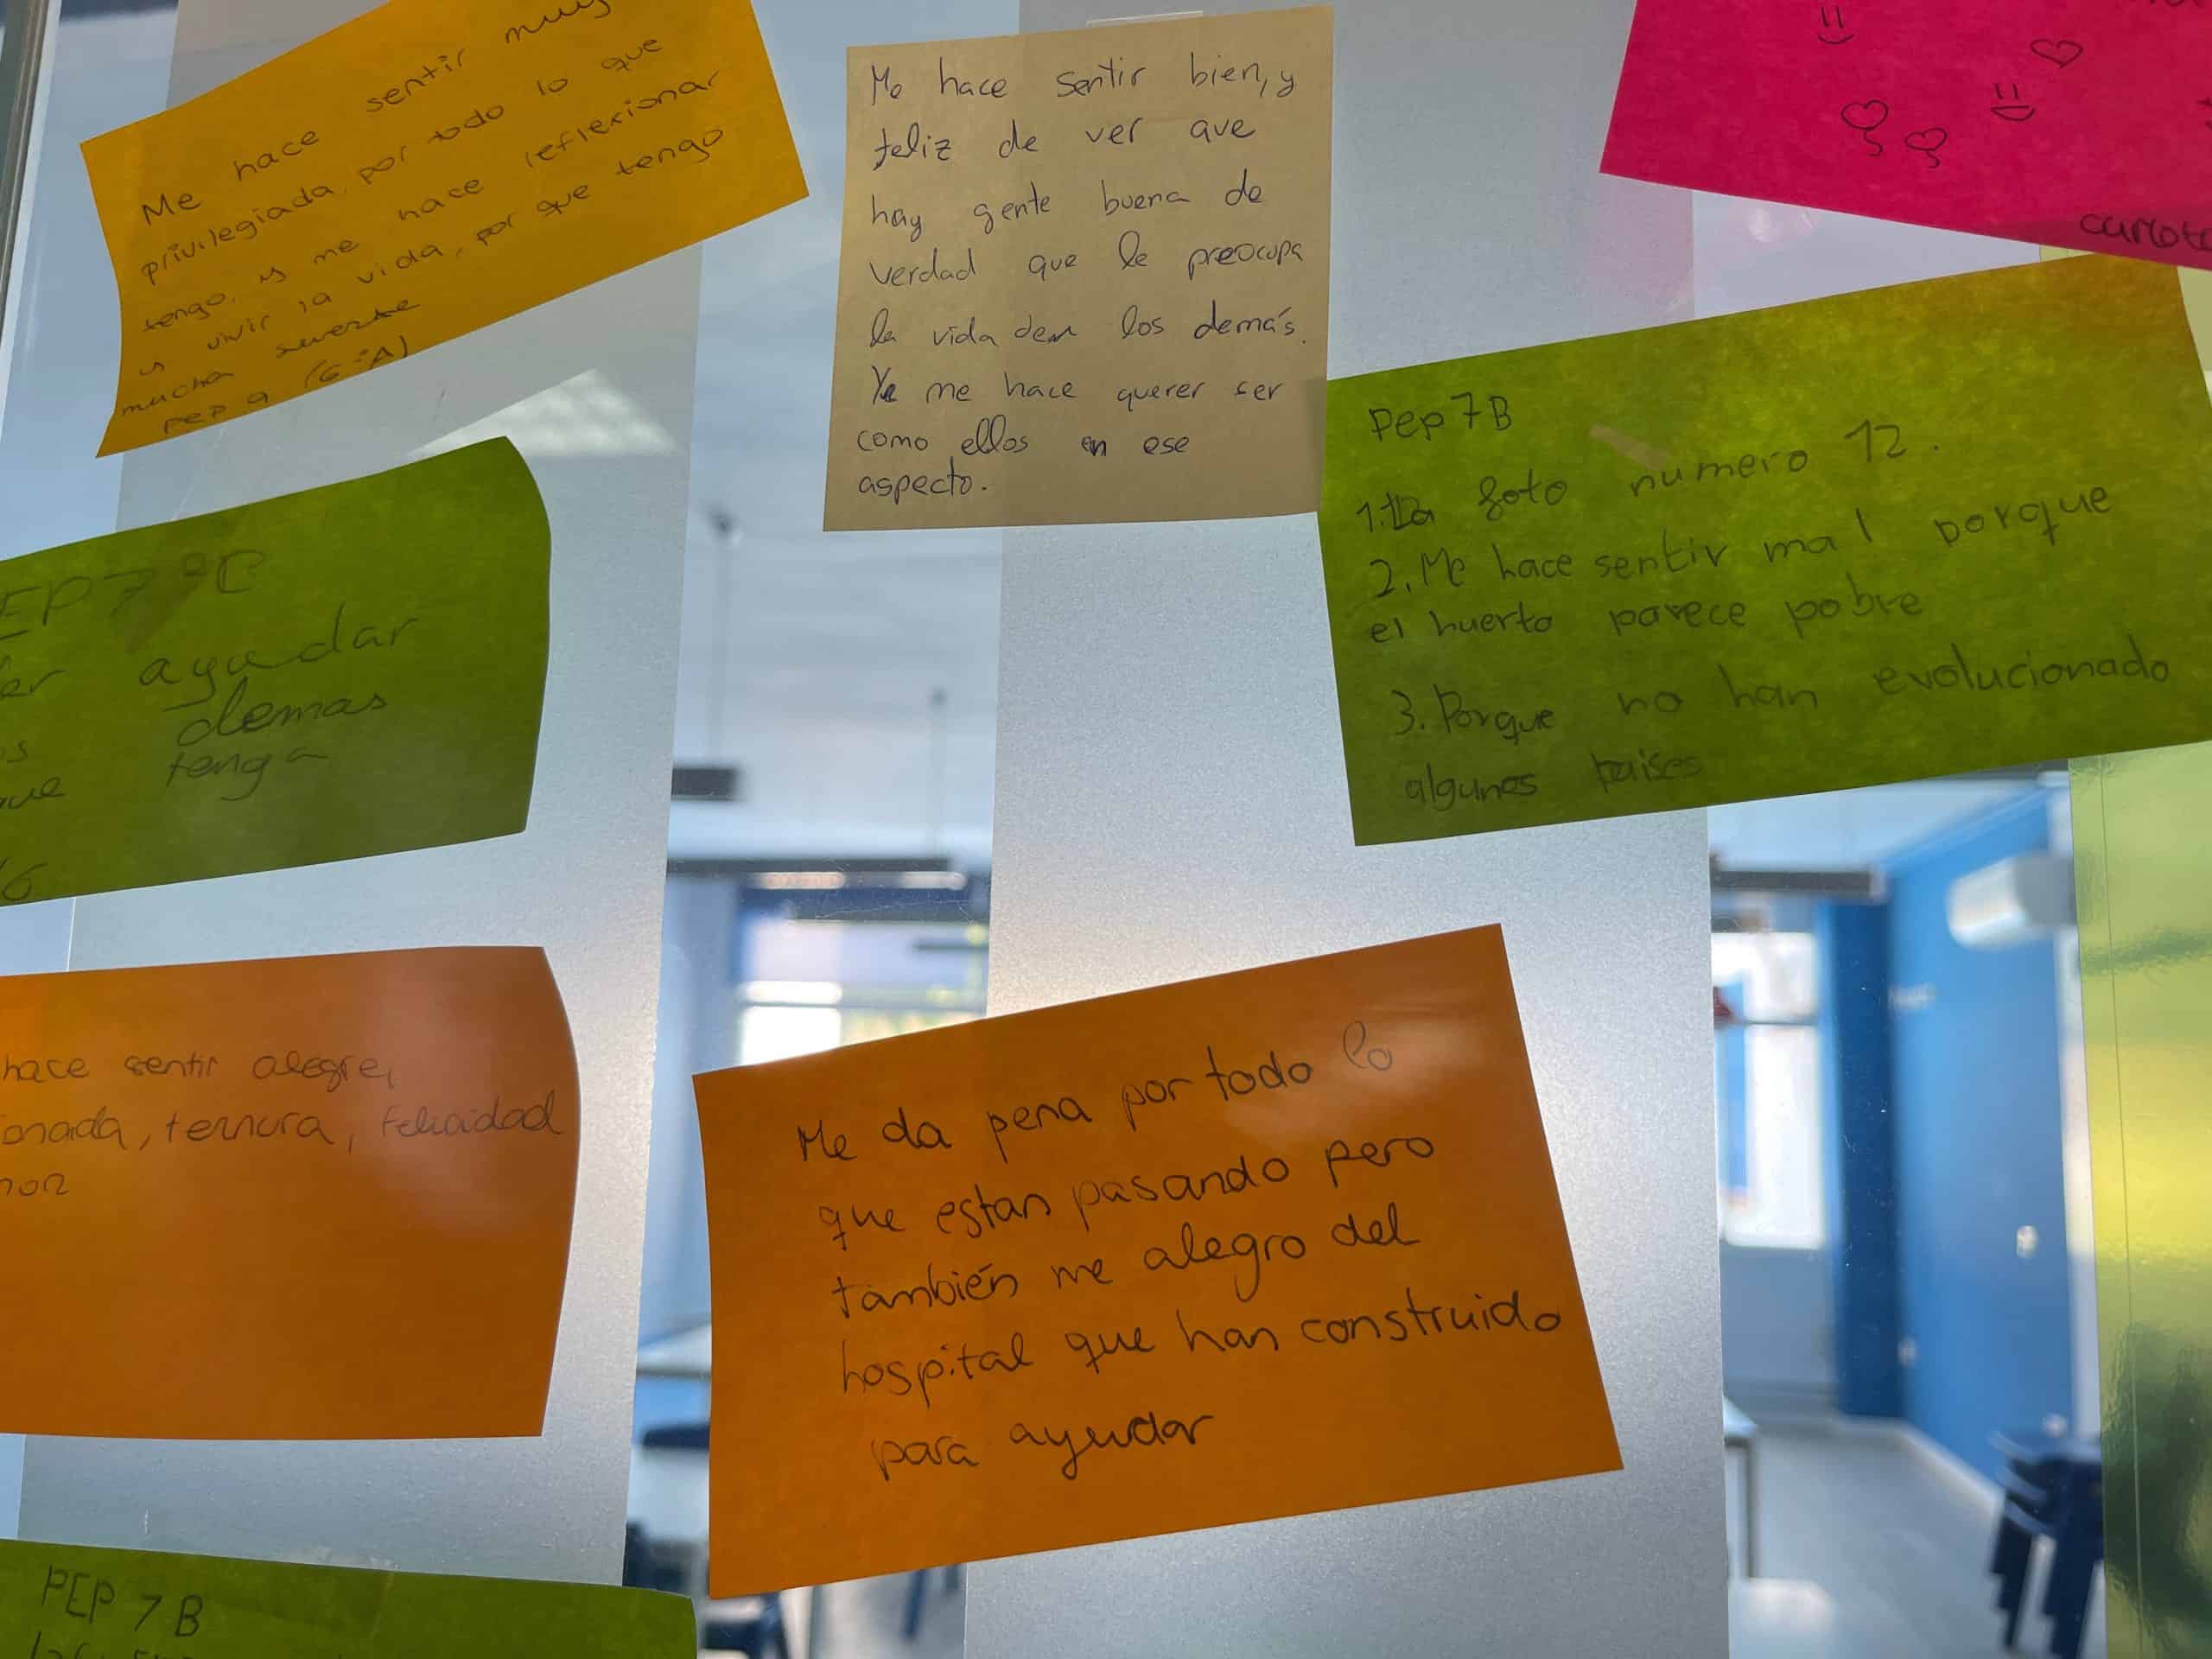 Me hace sentir muy
privilegiada, por todo lo que
tengo, y me hace reflexionar
y vivir la vida, por que tengo
mucha suerte
pep 9 (6ºA)
Me hace sentir bien, y
feliz de ver que
hay gente buena de
verdad que le preocupa
la vida den los demás.
Ye me hace querer ser
como ellos en ese
aspecto.
carlota
Pep 7B
1. La foto numero 12.
2. Me hace sentir mal porque
el huerto parece pobre
3. Porque no han evolucionado
algunos paises
EP 7ºC
er ayudar
demas
os
ue tenga
hace sentir alegre,
onada, ternura, felicidad
mor
Me da pena por todo lo
que estan pasando pero
también me alegro del
hospital que han construido
para ayudar
PEP 7 B